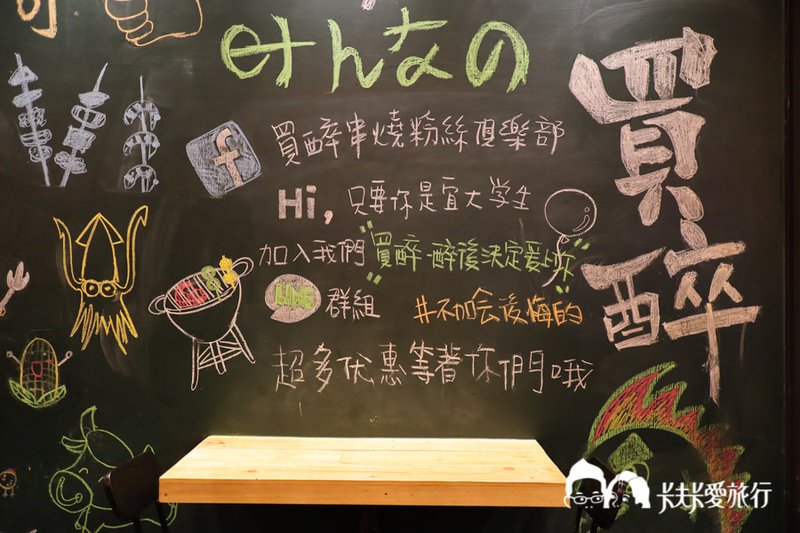 みんなの
買醉
f
買醉串燒粉絲俱樂部
Hi, 只要你是宜大学生
加入我們"買醉-醉後決定愛上你"
LINE 群組 #不加会後悔的
超多优惠等著你們哦
卡夫卡愛旅行